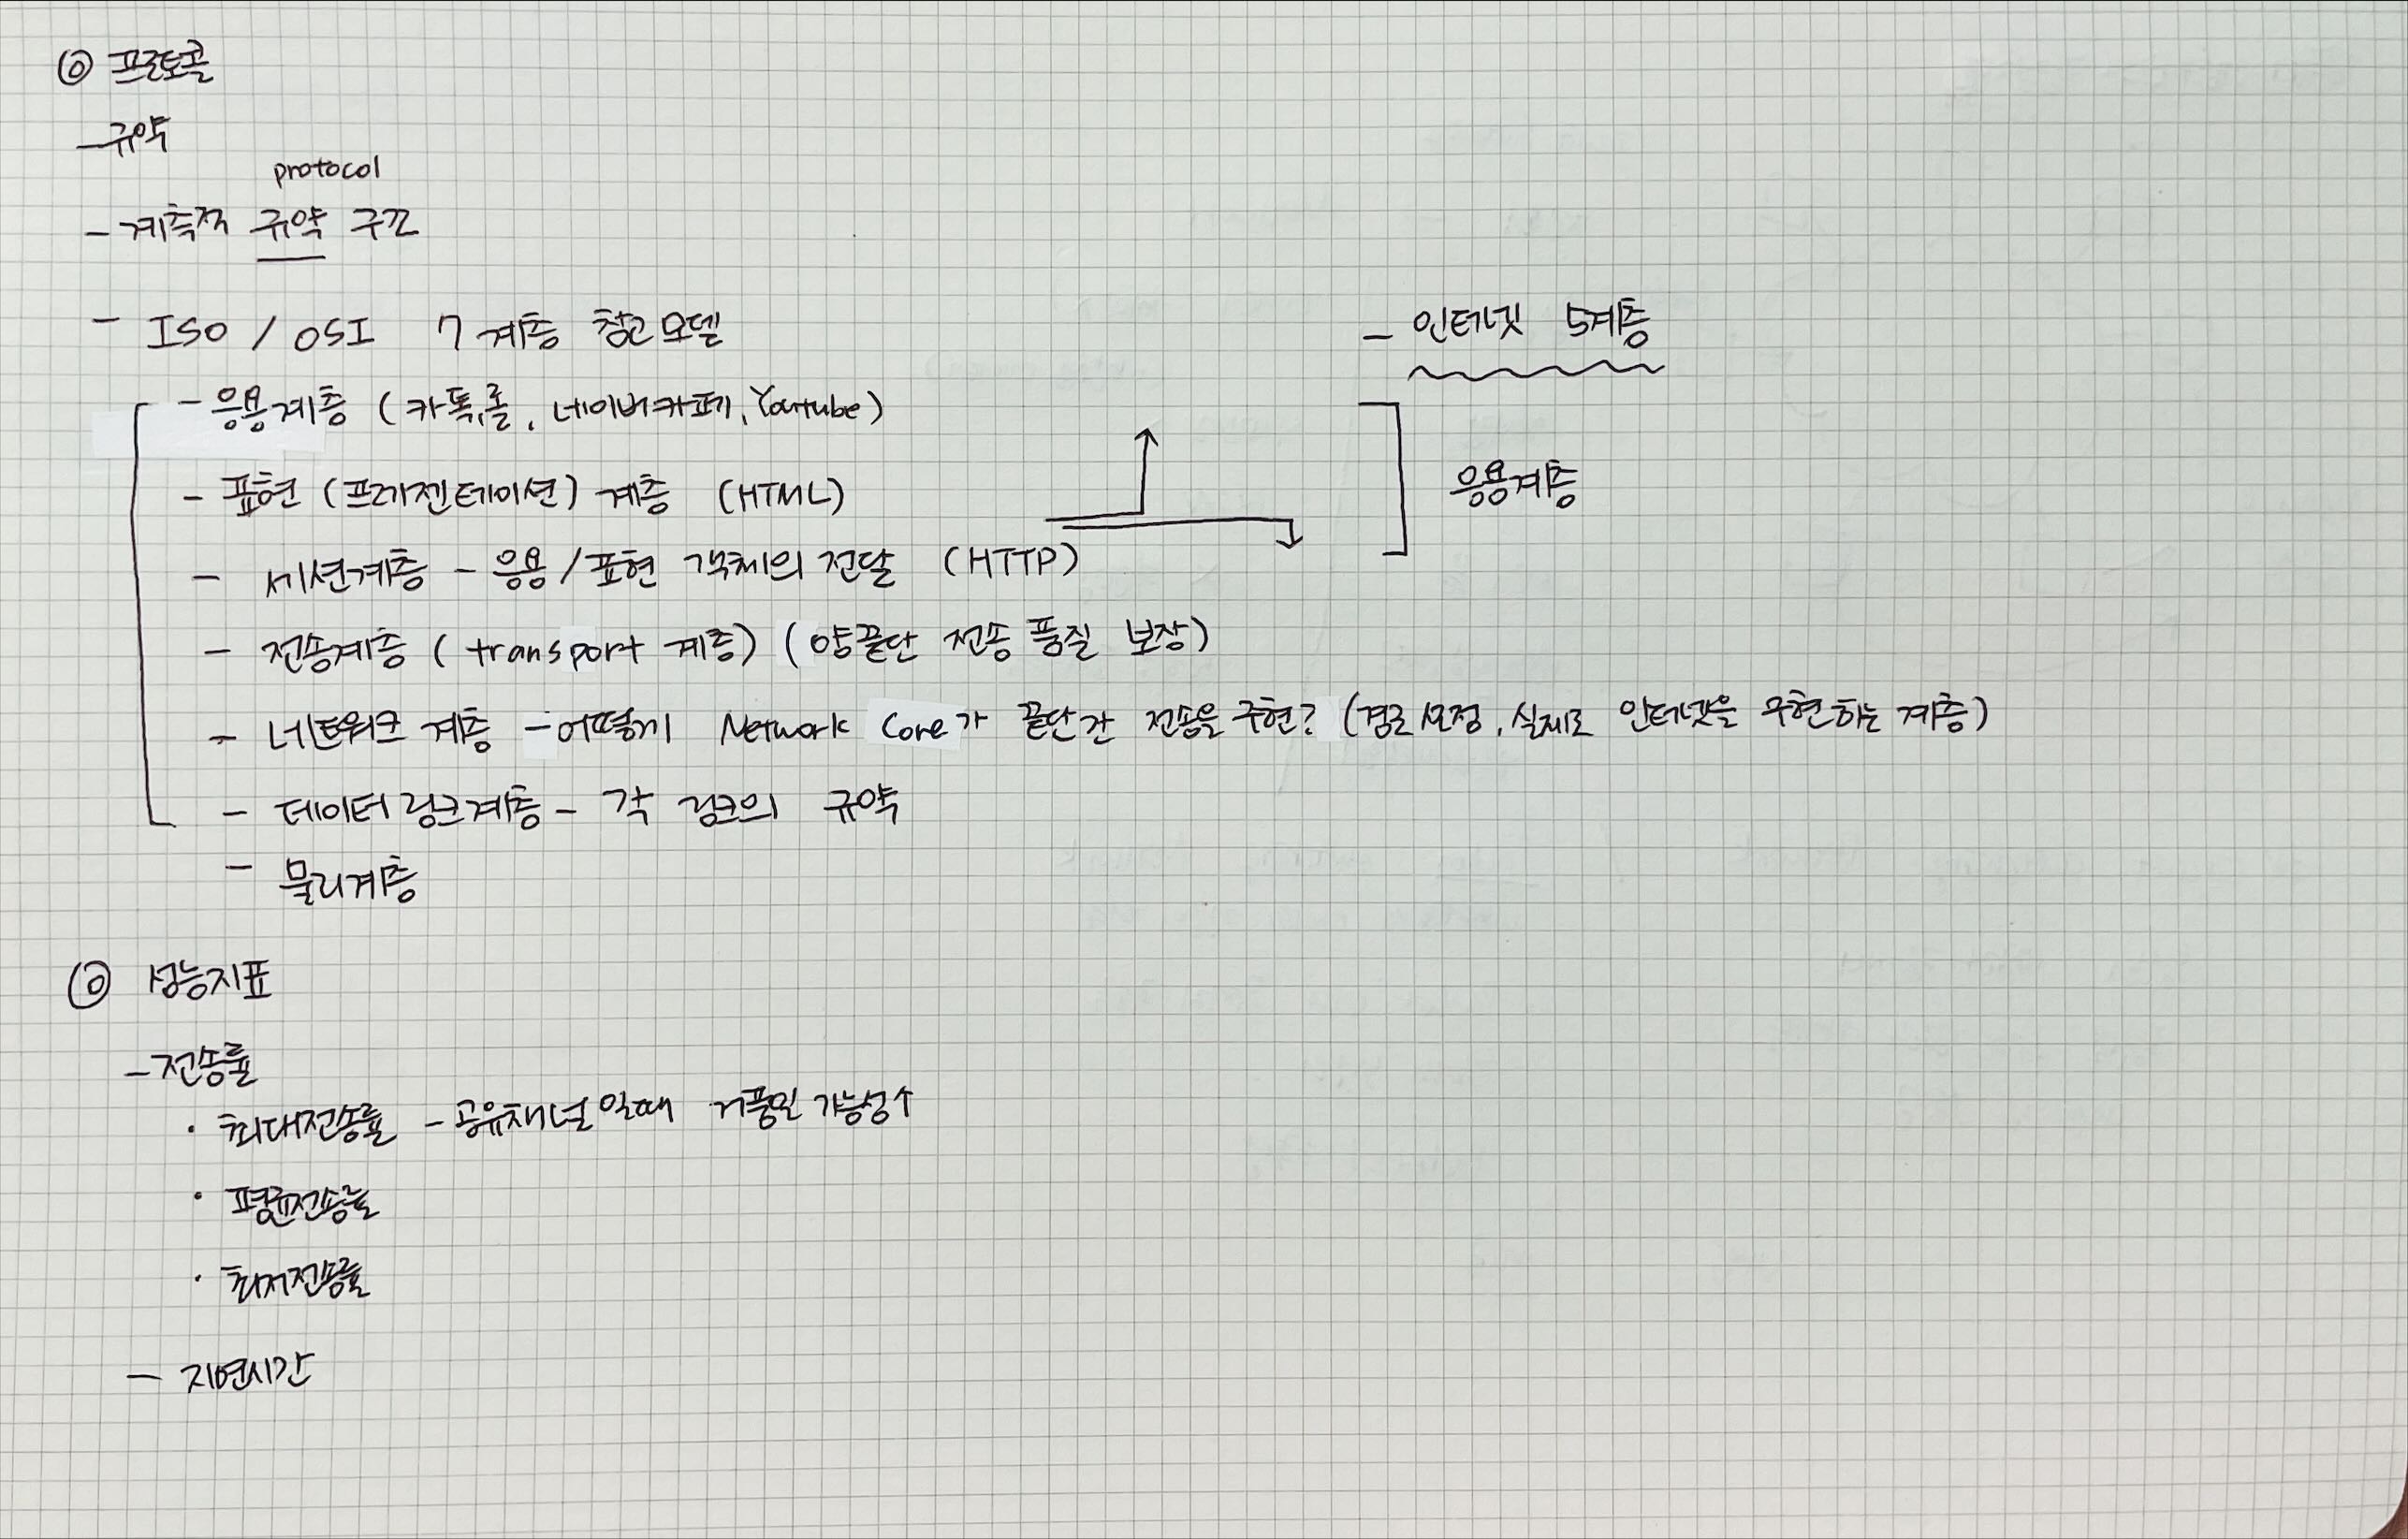 ◎ 프로토콜
- 규약
protocol
- 계층적 규약 구조
- ISO / OSI 7계층 참고모델
- 인터넷 5계층
- 응용계층 (카톡, 롤, 네이버카페, Youtube)
- 표현 (프레젠테이션) 계층 (HTML)
응용계층
- 세션계층 - 응용/표현 객체의 전달 (HTTP)
- 전송계층 (transport 계층) (양끝단 전송 품질 보장)
- 네트워크 계층 - 어떻게 Network Core가 끝단간 전송을 구현? (경로설정, 실제로 인터넷을 구현하는 계층)
- 데이터 링크계층 - 각 링크의 규약
- 물리계층
◎ 성능지표
- 전송률
· 최대전송률 - 공유채널일때 거품일 가능성↑
· 평균전송률
· 최저전송률
- 지연시간